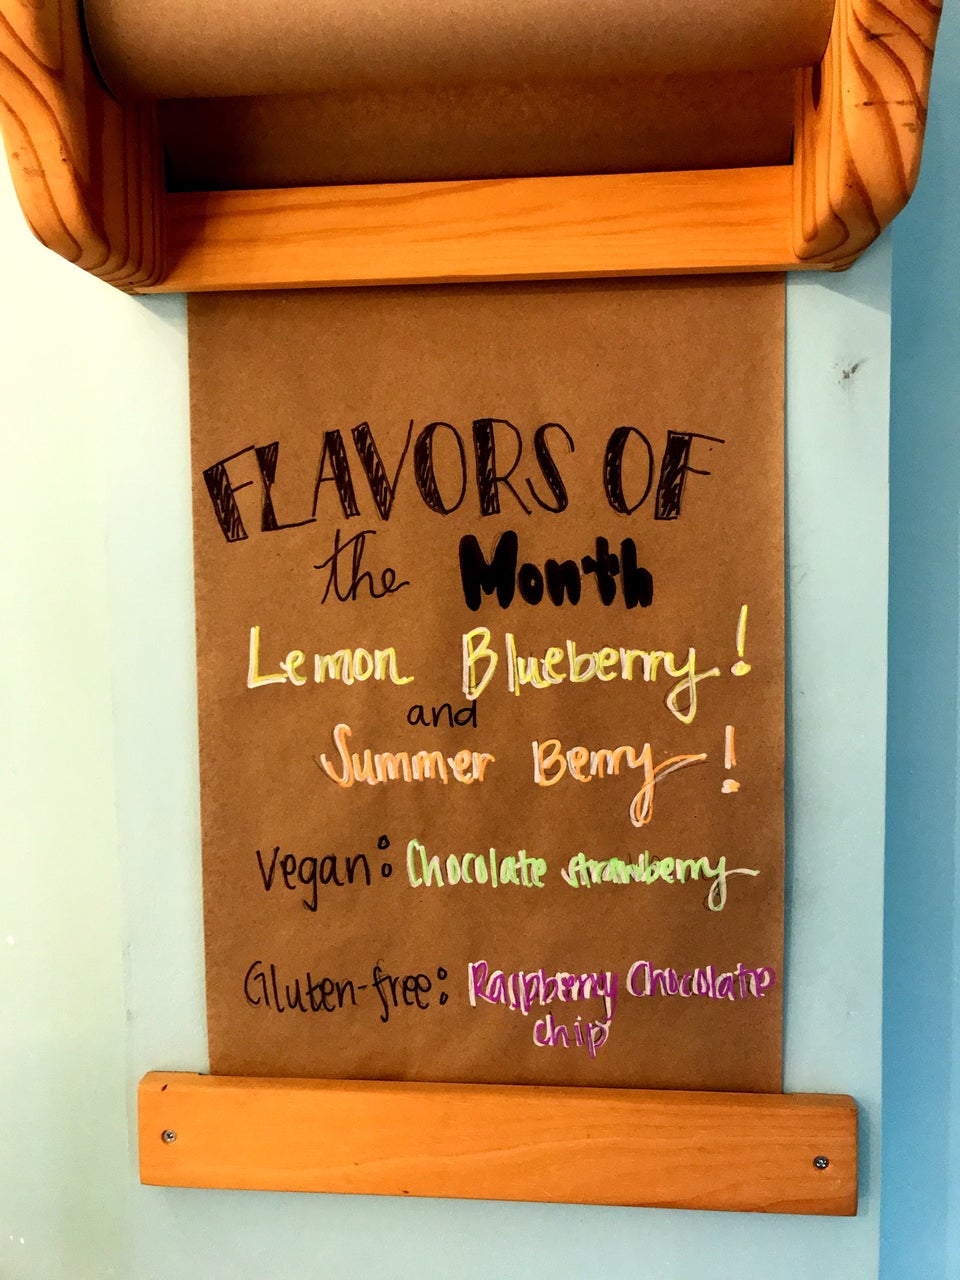 FLAVORS OF
the Month
Lemon Blueberry!
and
Summer Berry!
Vegan: Chocolate strawberry
Gluten-free: Raspberry Chocolate
chip